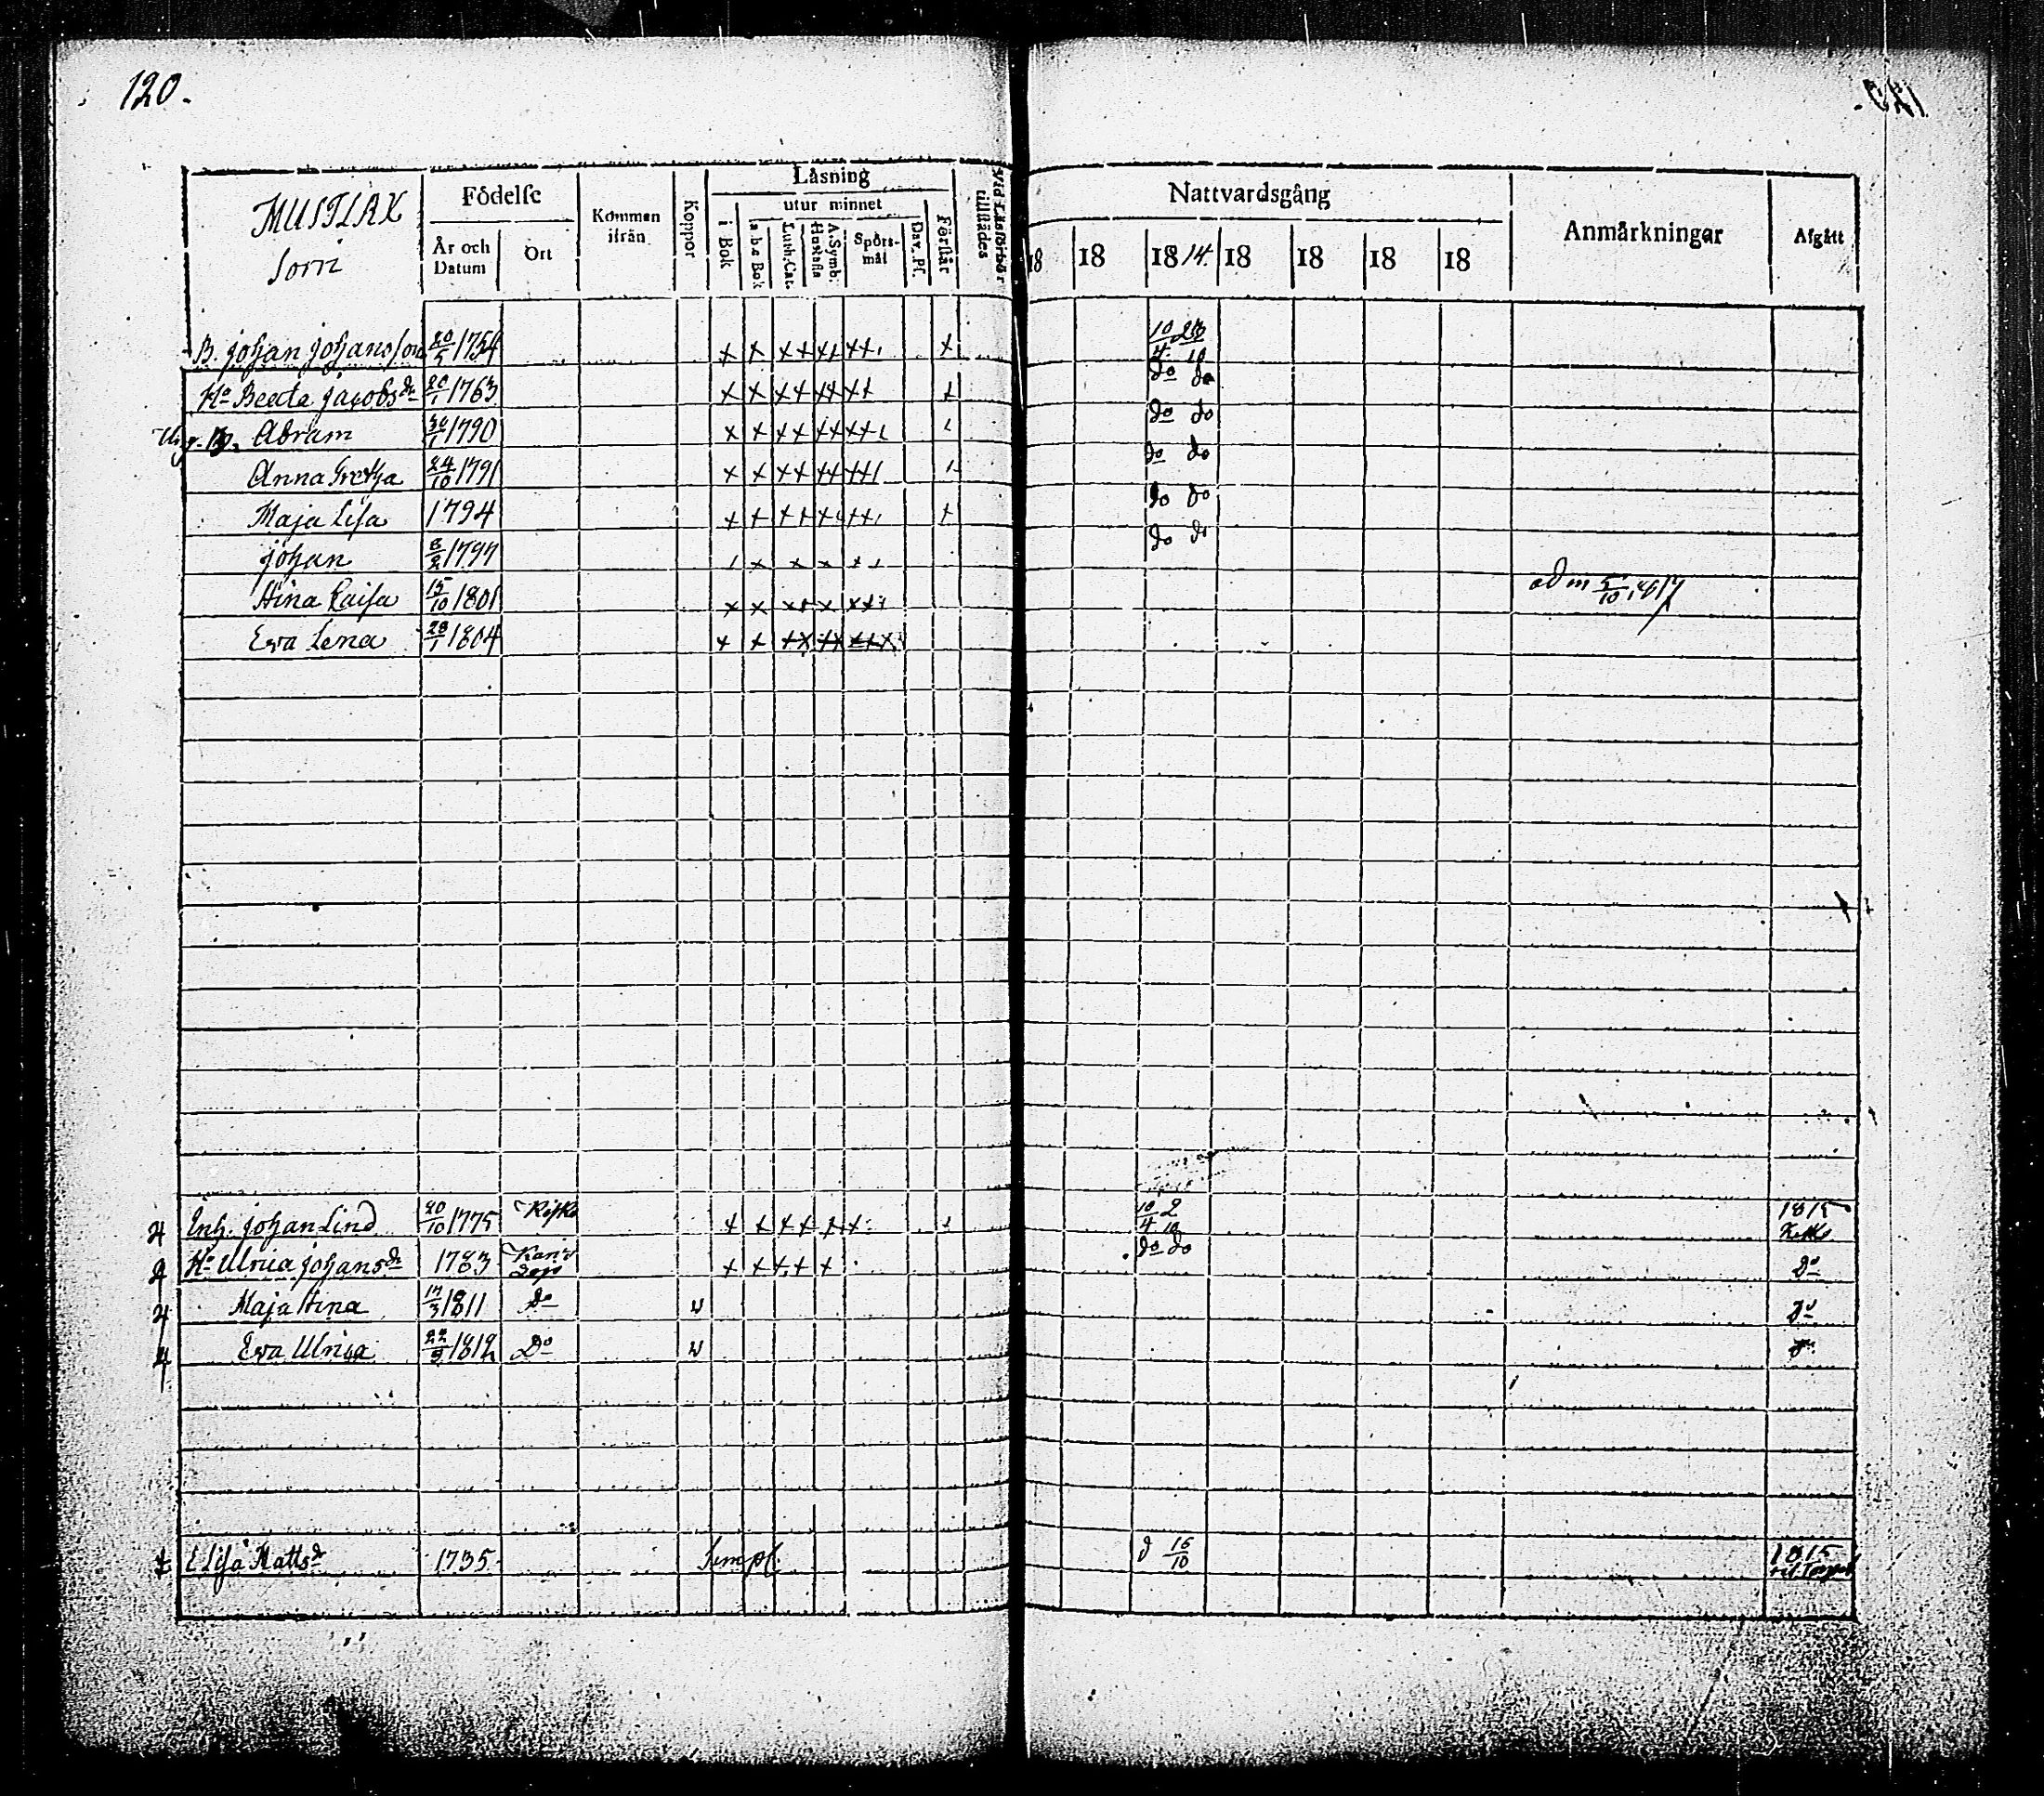 120.
MUSTLAX
Sorri
Födelse
År och Datum
Ort
Kommen ifrån
Koppor
Låsning
i Bok
utur minnet
a b c Bok
Luth. Cat.
Hustafla
A. Symb.
Spörs-mål
Dav. Pf.
Förstår
Vid Läsförhör tillstädes
Nattvardsgång
18 18 1814. 18 18 18 18
Anmårkningar
Afgått
B. Johan Johansson 20/5 1754 x x x x x x x x x 10/4
Ha Beeta Jacobs dr 20/1 1763 x x x x x x x x x do do
Abram 30/1 1790 x x x x x x x x do do
Anna Gretha 24/10 1791 x x x x x x x x do do
Maja Lisa 1794 x x x x x x x do do
Johan 8/2 1797 x x x x do do
Stina Caisa 15/10 1801 x x x x x x x adm 5/10 1817
Eva Lena 28/1 1804 x x x x x x x x x
Inh. Johan Lind 20/10 1775 x x x x x x 10/4 2/10 1815
Ho Ulrica Johans dr 1783 x x x x x do do Do
Maja Stina 17/3 1811 Do v Do
Eva Ulrica 22/9 1812 Do v
Lisa Matts dr 1735 simpl. d 16/10 1815